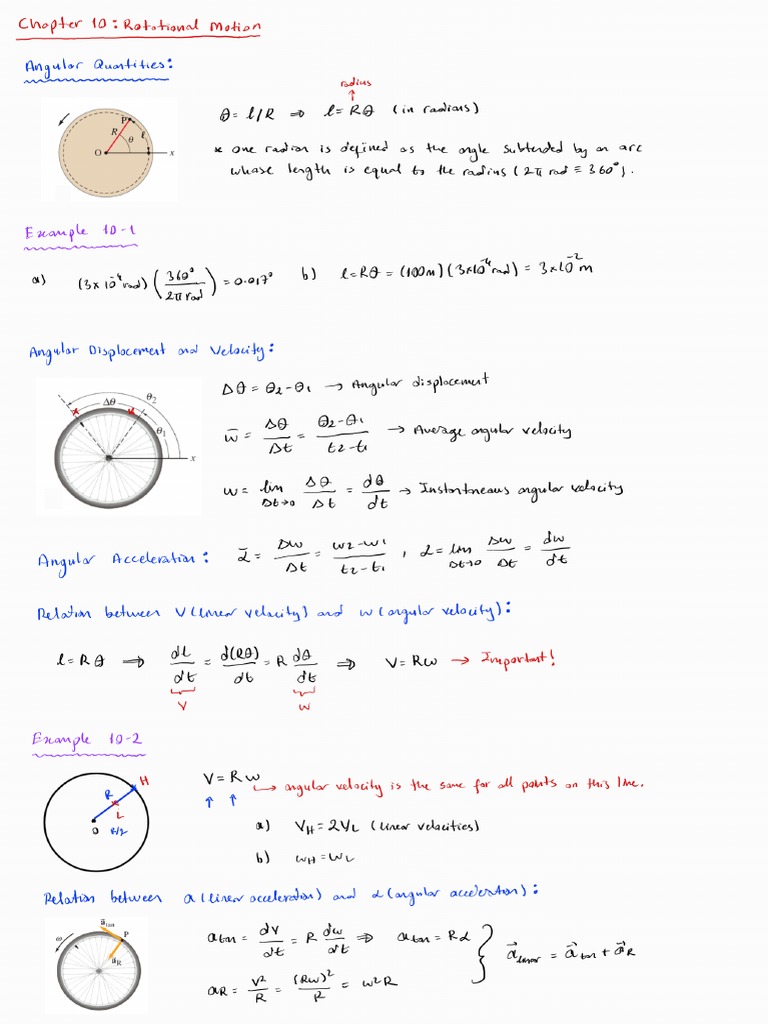 Chapter 10: Rotational Motion
Angular Quantities:
radius
θ = l/R ⇒ l = Rθ (in radians)
* one radian is defined as the angle subtended by an arc
whose length is equal to the radius (2π rad ≡ 360°).
P
R
l
θ
O
x
Example 10-1
a) (3x10⁻⁴ rad) (360°/2π rad) = 0.017° b) l = Rθ = (100m)(3x10⁻⁴ rad) = 3x10⁻² m
Angular Displacement and Velocity:
θ₂
Δθ
θ₁
x
Δθ = θ₂ - θ₁ → Angular displacement
w̄ = Δθ/Δt = θ₂-θ₁/t₂-t₁ → Average angular velocity
w = lim Δt→0 Δθ/Δt = dθ/dt → Instantaneous angular velocity
Angular Acceleration: ᾱ = Δw/Δt = w₂-w₁/t₂-t₁ , α = lim Δt→0 Δw/Δt = dw/dt
Relation between V (linear velocity) and w (angular velocity):
l = Rθ ⇒ dl/dt = d(Rθ)/dt = R dθ/dt ⇒ V = Rw → Important!
V w
Example 10-2
H
R
L
O
R/2
V = Rw
↳ angular velocity is the same for all points on this line.
a) V_H = 2V_L (linear velocities)
b) w_H = w_L
Relation between a (linear acceleration) and α (angular acceleration):
ω
a⃗tan
P
a⃗R
a tan = dV/dt = R dw/dt ⇒ a tan = Rα
a_R = V²/R = (Rw)²/R = w²R
a⃗ linear = a⃗ tan + a⃗_R